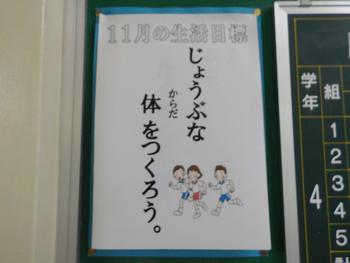 11月の生活目標
じょうぶな
からだ
体をつくろう。
学年
組
4
1
2
3
4
5